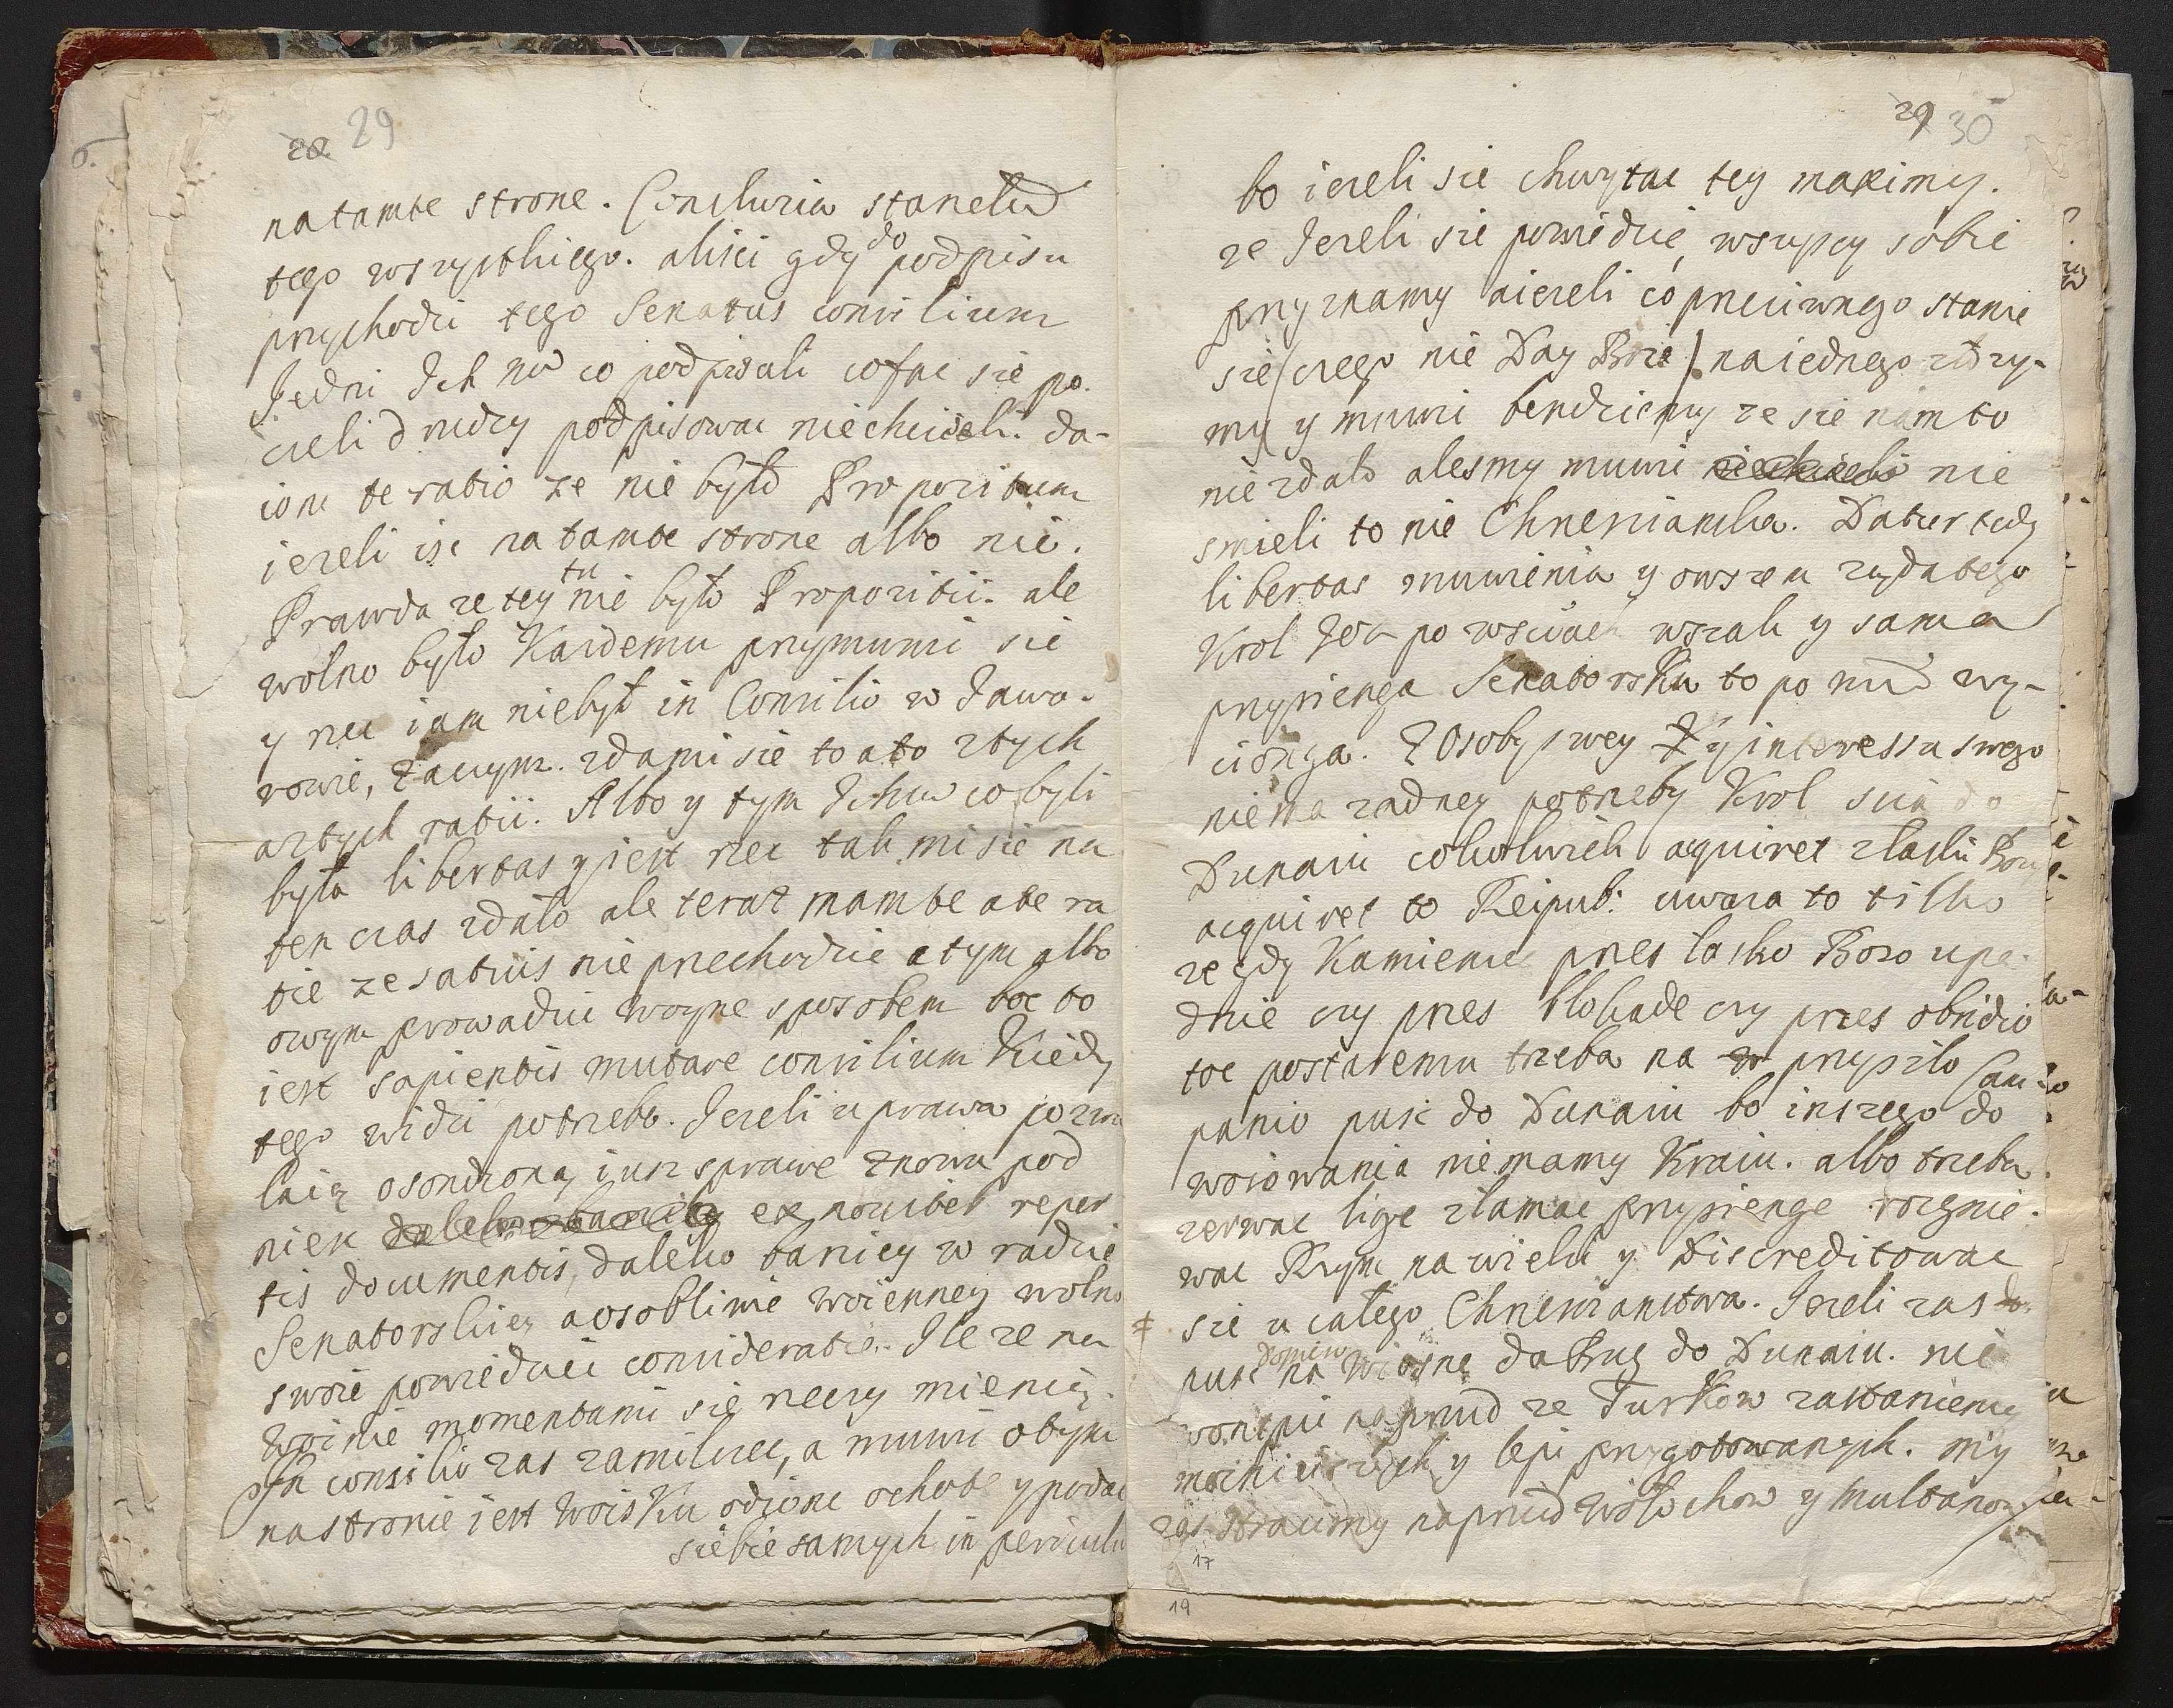 28 29
natamte strone. Concluzia stanela
tego wszystkiego. alisci gdy do podpisu
przychodzi tego Senatus consilium
Jedni Ich mo co podpisali cofac sie po-
czeli drudzy podpisowac niechcieli. da-
ionc te ratio ze nie było Propozitum
iezeli isc na tamte strone albo nie.
Prawda ze tey tu nie było Propozitii. ale
wolno było Kaidemu przymuwi sie
y nec iam niebył in Consilio w Jawo-
rowie, zaczym. zdami sie to a to ztych
aztych ratii. Albo y tym Ichm co byli
była libertas y iest rzec tak mi sie na
ten czas zdało ale teraz mam te a te ra
tie ze satius nie przechodzic a tym albo
owym prowadzic woyne sposobem boc to
iest sapientis mutare consilium Kiedy
tego widzi potrzebe. Jezeli u prawa pozwa
laią osondzoną iusz sprawe znowu pod
niesc ex noviter reper
tis documentis, daleko barziey w radzie
Senatorskiey a osobliwie woienney wolno
swoie powiedziec consideratie. Ile ze na
Woinie momentami się rzeczy mienią.
In consilio zas zamilczec, a muwic otym
nastronie iest Woisku odionc ochote y podac
siebie samych in periculu
29 30
bo iezeli sie chwytac tey maximy.
ze Jezeli sie powiedzie, wszyscy sobie
przyznamy aiezeli co przeciwnego stanie
sie (czego nie Day Boze) naiednego złozy-
my y muwic bendziemy ze sie nam to
niezdało alesmy muwic nie
smieli to nie Chrzescianska. Datur tedy
libertas muwienia y owszem ząda tego
Krol Jeo po wszwach wszak y sama
przysienga Senatorska to po nas wy-
cionga. Z Osoby swey y interessu swego
niema zadney potrzeby Krol scia do
Dunaiu cokolwiek acquiret z laski Bozy
acquiret to Reipub: uwaza to tilko
ze gdy Kamieniec przes lasko Bozo upa-
dnie czy przes blokade czy przes obsidio
toc postaremu trzeba na przyszlo Cam-
panio pusc do Dunaiu bo inszego do
woiowania niemamy Kraiu. albo trzeba
zerwac lige zlamac przysienge rozgnie-
wac Rzym na wieki y Discreditowac
sie u całego Chrzescianstwa. Jezeli zas
pusc na wiosne dobrug do Dunaiu. nie
wontpic naprzud ze Turkow zastaniemy
mocnieiszych y lepi przygotowanych. my
zas stracimy naprzud Wołochow y Multanow
17
19